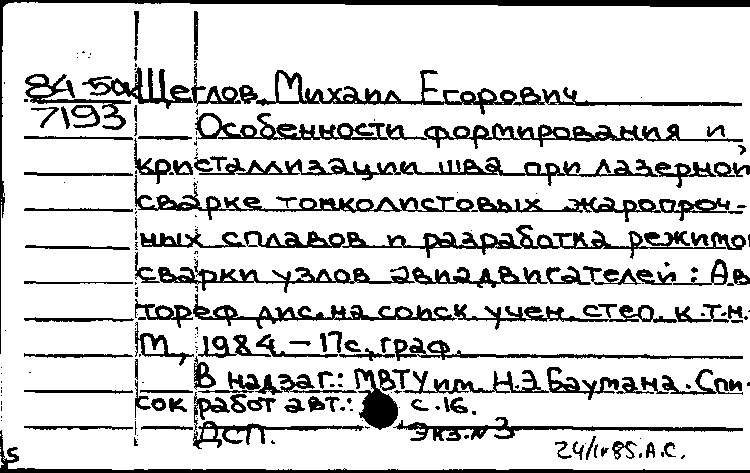 84-50к Щеглов, Михаил Егорович
7193 Особенности формирования и
кристаллизации шва при лазерной
сварке тонколистовых жаропроч-
ных сплавов и разработка режимо
сварки узлов авиадвигателей: Ав
тореф. дис. на соиск. учен. степ. к.т.н.
М, 1984. – 17с., граф.
В надзаг.: МВТУ им. Н.Э.Баумана. Спи-
сок работ авт.: с. 16.
ДСП. Экз.№3
S 24/IV 85. А.С.